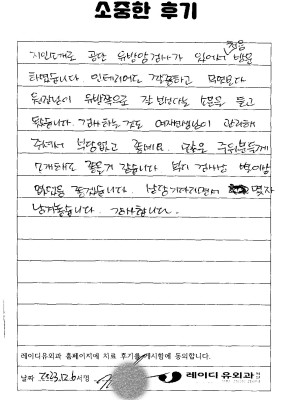 소중한 후기
지인소개로 공단 유방암검사가 있어서 처음 방문
하였습니다. 인테리어도 깔끔하고 무엇보다
원장님이 유방쪽으로 잘 본다는 소문을 듣고
왔습니다. 검사하는것도 여자선생님이 관리해
주셔서 부담없고 좋네요. 주위분들께
소개해도 좋을거 같습니다. 검사는 별이상
없었음 좋겠습니다. 남장 기다리면서 몇자
남겨놓습니다. 감사합니다.
레이디유외과 홈페이지에 치료 후기를 게시함에 동의합니다.
날짜 2023.12.6 서명
레이디유외과